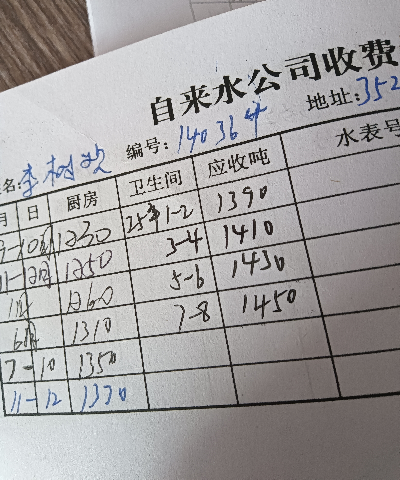 自来水公司收费
名:李树欢 编号:140364 地址:352
月 日 厨房 卫生间 应收吨 水表号
9-10月 1230 25年1-2 1390
11-12月 1250 3-4 1410
1260 5-6 1430
1310 7-8 1450
7-10 1350
11-12 1370